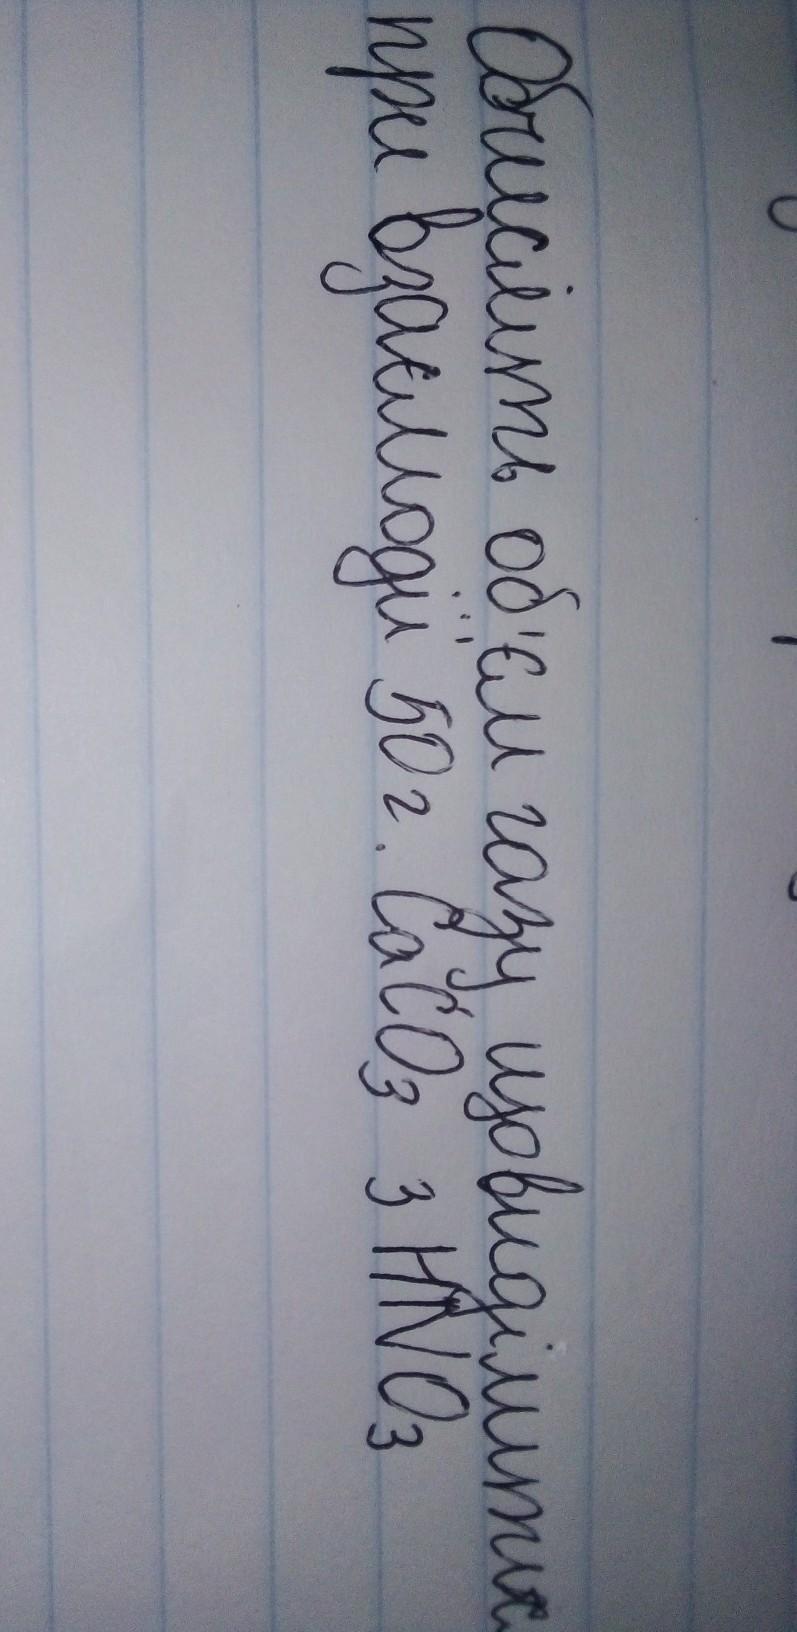 Обчисліть об'єм газу що виділиться
при взаємодії 50 г. CaCO3 з HNO3